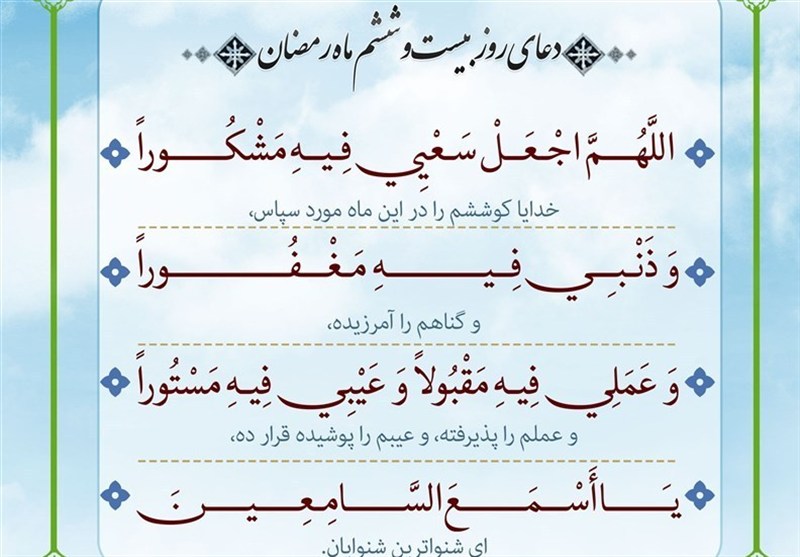 دعای روز بیست و ششم ماه رمضان
اللَّهُمَّ اجْعَلْ سَعْيِي فِيهِ مَشْكُوراً
خدایا کوششم را در این ماه مورد سپاس،
وَ ذَنْبِي فِيهِ مَغْفُوراً
و گناهم را آمرزیده،
وَ عَمَلِي فِيهِ مَقْبُولاً وَ عَيْبِي فِيهِ مَسْتُوراً
و عملم را پذیرفته، و عیبم را پوشیده قرار ده،
يَا أَسْمَعَ السَّامِعِينَ
ای شنواترین شنوایان.